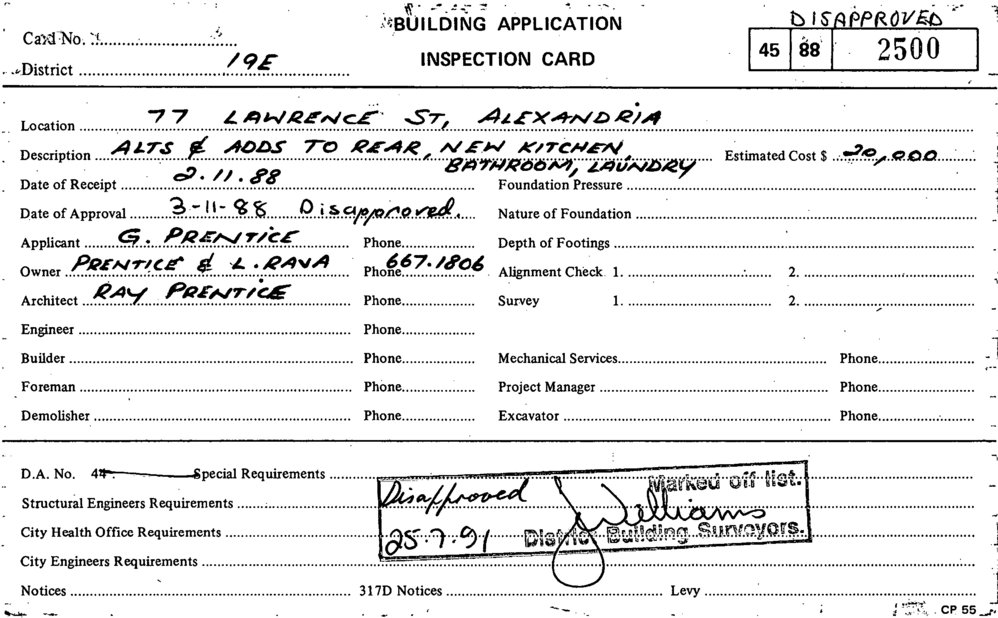 DISAPPROVED
BUILDING APPLICATION
INSPECTION CARD
Card No.
45 88 2500
District 19E
Location 77 LAWRENCE ST, ALEXANDRIA
Description ALTS & ADDS TO REAR, NEW KITCHEN, BATHROOM, LAUNDRY Estimated Cost $ 20,000
Date of Receipt 2.11.88 Foundation Pressure
Date of Approval 3-11-88 Disapproved. Nature of Foundation
Applicant G. PRENTICE Phone Depth of Footings
Owner PRENTICE & L. RAVA Phone 667.1806 Alignment Check 1. 2.
Architect RAY PRENTICE Phone Survey 1. 2.
Engineer Phone
Builder Phone Mechanical Services Phone
Foreman Phone Project Manager Phone
Demolisher Phone Excavator Phone
D.A. No. 44 Special Requirements
Structural Engineers Requirements
City Health Office Requirements
City Engineers Requirements
Notices 317D Notices Levy
Disapproved Marked off list.
J Williams
25.7.91 District Building Surveyors.
CP 55